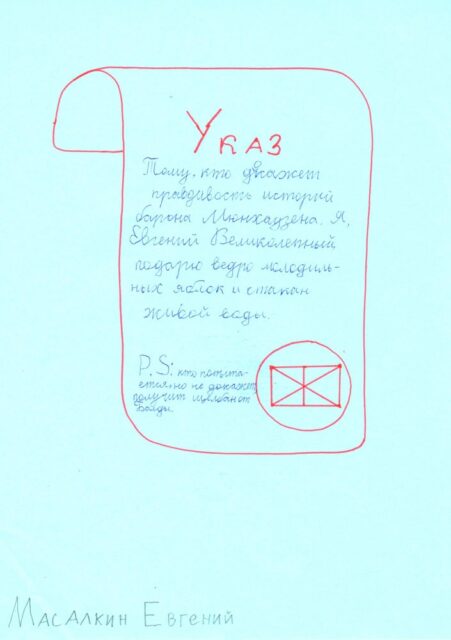 Указ
Тому, кто докажет
правдивость историй
барона Мюнхаузена. Я,
Евгений Великолепный
подарю ведро молодиль-
ных яблок и стакан
живой воды.
P.S: кто попыта-
ется, но не докажет,
получит щелбан от
Балды.
Масалкин Евгений